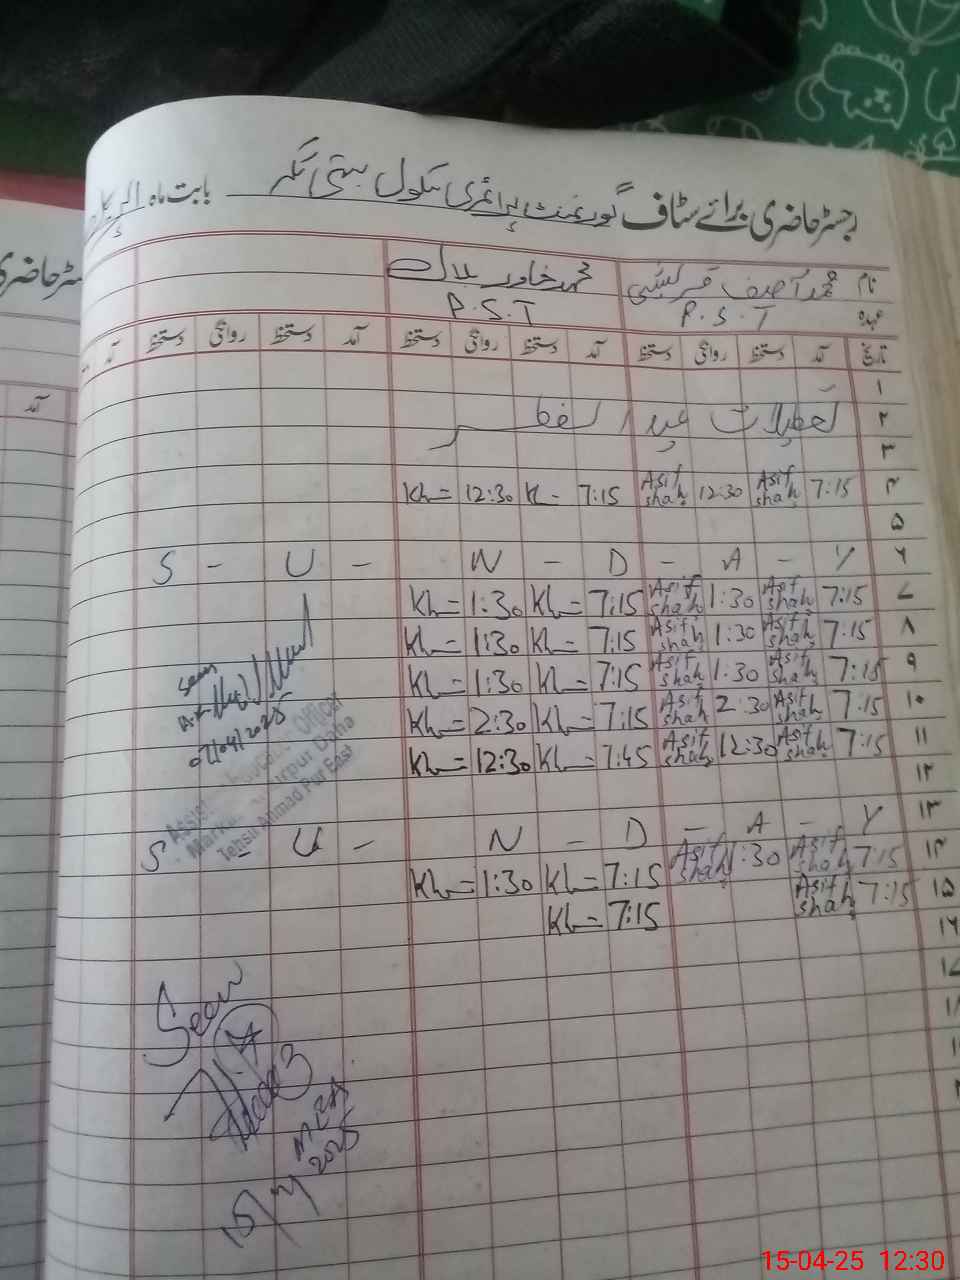 رجسٹر حاضری برائے سٹاف گورنمنٹ پرائمری سکول بستی بابت ماہ اپریل
نام محمد آصف قریشی محمد خاور بلال
عہدہ P.S.T P.S.T
تاریخ آمد دستخط روانگی دستخط آمد دستخط روانگی دستخط آمد دستخط روانگی دستخط آمد
۱
۲ تعطیلات عید الفطر
۳
۴ 7:15 Asif shah 12:30 Asif shah 7:15 Kh 12:30 Kh
۵
۶ S - U - N - D - A - Y
۷ 7:15 Asif shah 1:30 Asif shah 7:15 Kh 1:30 Kh
۸ 7:15 Asif shah 1:30 Asif shah 7:15 Kh 1:30 Kh
۹ 7:15 Asif shah 1:30 Asif shah 7:15 Kh 1:30 Kh
۱۰ 7:15 Asif shah 2:30 Asif shah 7:15 Kh 2:30 Kh
۱۱ 7:15 Asif shah 12:30 Asif shah 7:45 Kh 12:30 Kh
۱۲
۱۳ S - U - N - D - A - Y
۱۴ 7:15 Asif shah 1:30 Asif shah 7:15 Kh 1:30 Kh
۱۵ 7:15 Asif shah 7:15 Kh
۱۶
۱۷
۱۸
Seen
07/04/2025
Officer
Tehsil Ahmad Pur East
Seen
2025
سٹر حاضری
آمد
15-04-25 12:30